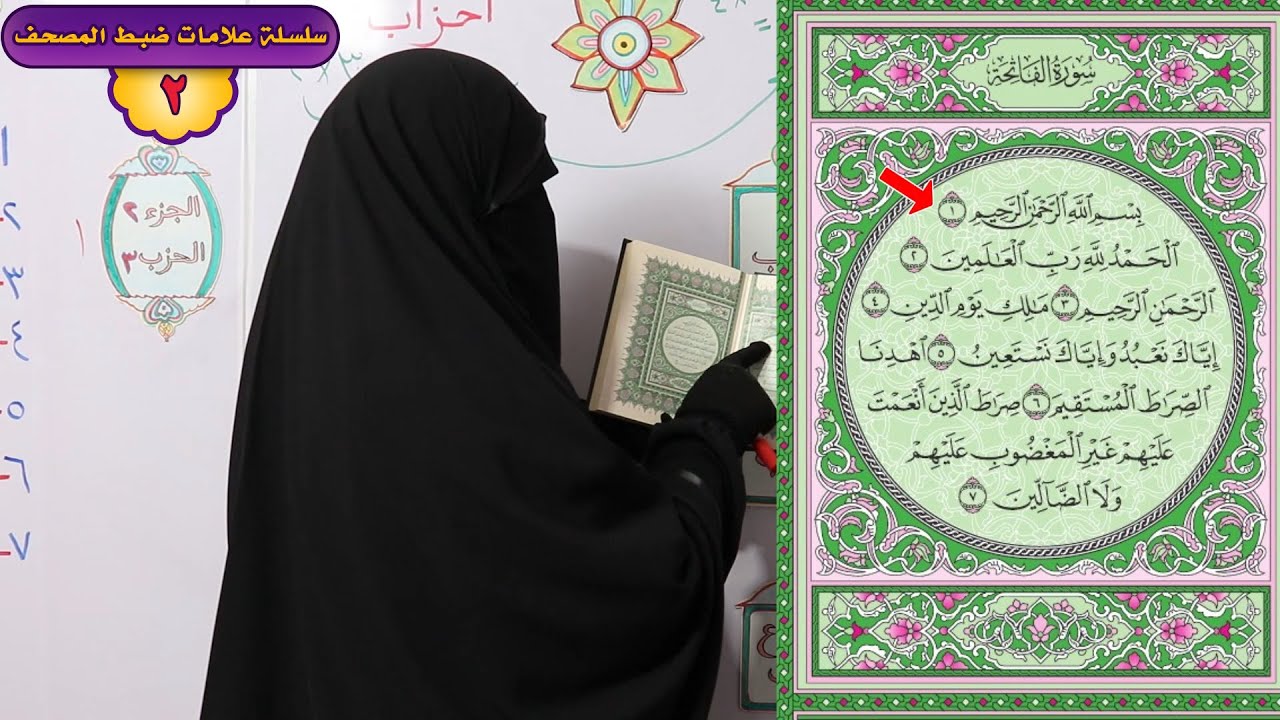 سلسلة علامات ضبط المصحف
٢
احزاب
الجزء ٢
الحزب ٣
١
١
٢-
٣-
٤-
٥-
٦-
٧-
سُورَةُ الفَاتِحَةِ
بِسْمِ ٱللَّهِ ٱلرَّحْمَٰنِ ٱلرَّحِيمِ ١
ٱلْحَمْدُ لِلَّهِ رَبِّ ٱلْعَٰلَمِينَ ٢
ٱلرَّحْمَٰنِ ٱلرَّحِيمِ ٣ مَٰلِكِ يَوْمِ ٱلدِّينِ ٤
إِيَّاكَ نَعْبُدُ وَإِيَّاكَ نَسْتَعِينُ ٥ ٱهْدِنَا
ٱلصِّرَٰطَ ٱلْمُسْتَقِيمَ ٦ صِرَٰطَ ٱلَّذِينَ أَنْعَمْتَ
عَلَيْهِمْ غَيْرِ ٱلْمَغْضُوبِ عَلَيْهِمْ
وَلَا ٱلضَّآلِّينَ ٧